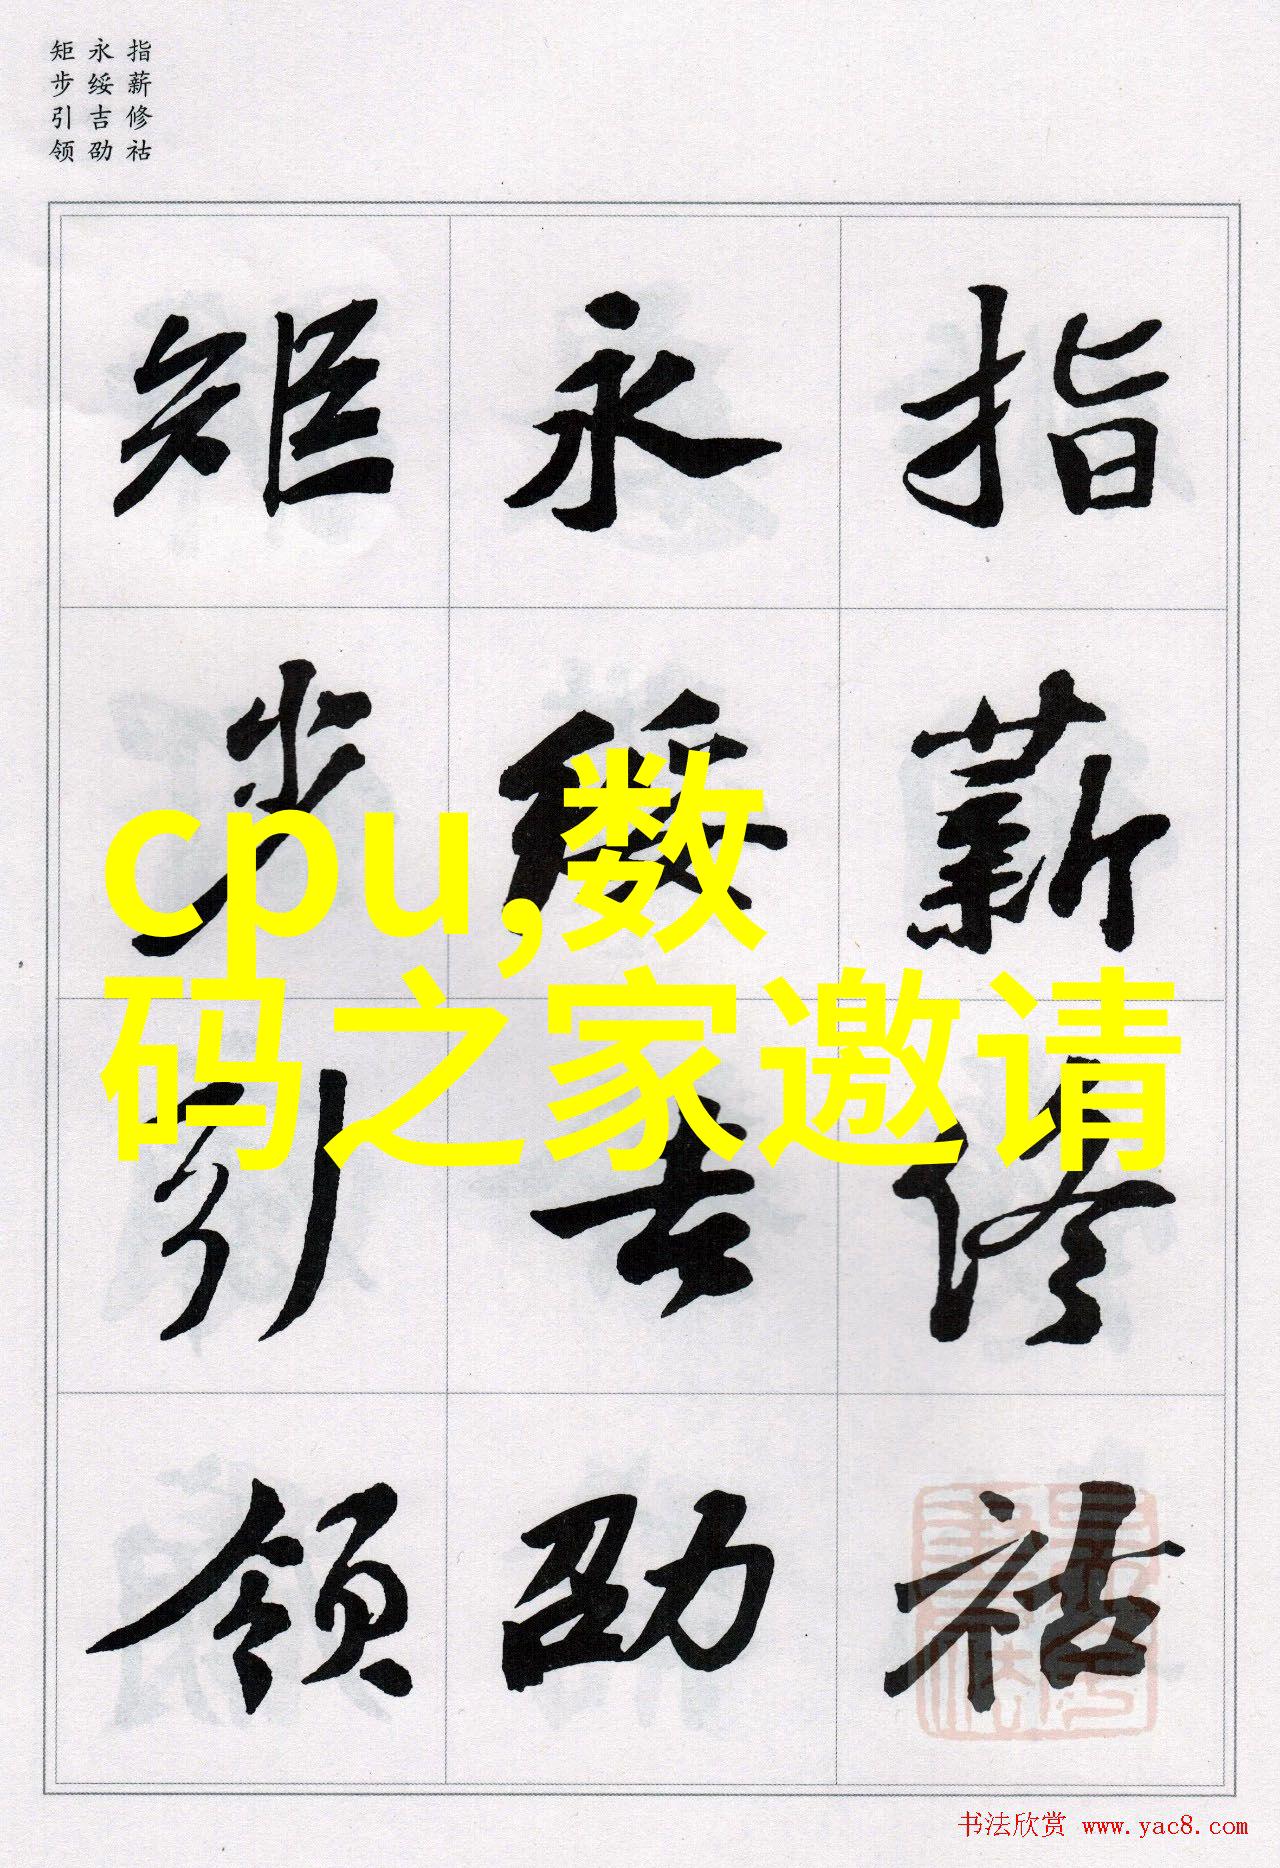 指薪修祜
永绥吉劭
矩步引领
指薪修祜
永绥吉劭
矩步引领
cpu,数
码之家邀请
书法欣赏 www.yac8.com